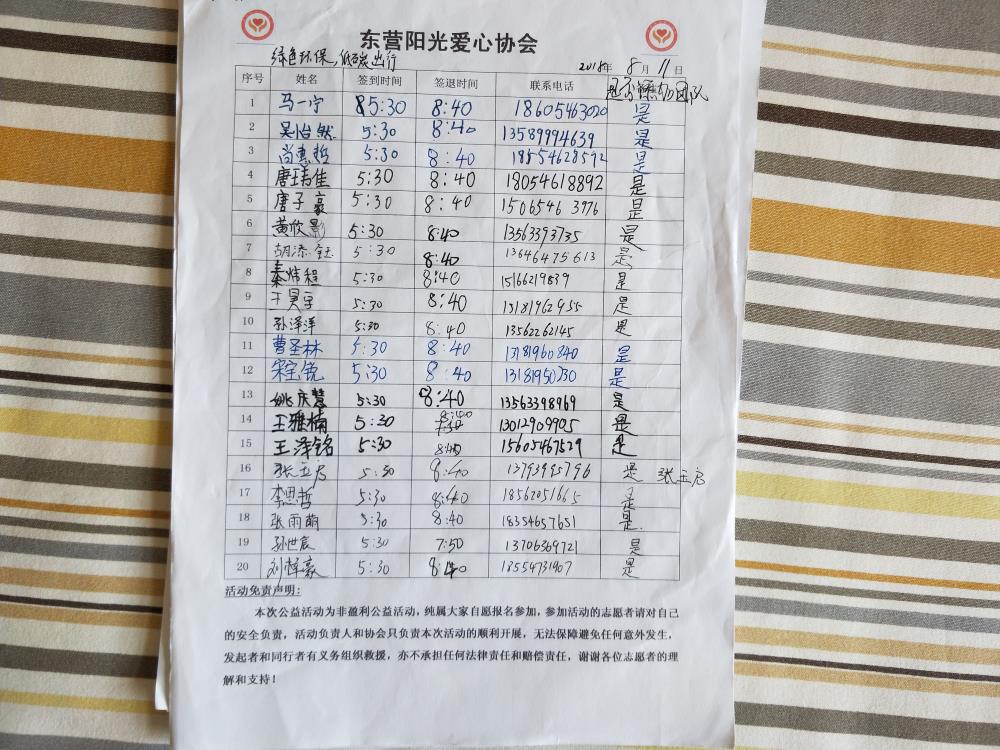 东营阳光爱心协会
绿色环保,低碳出行
2018年 8月 11日
序号 姓名 签到时间 签退时间 联系电话 团队
1 马一宁 85:30 8:40 18605463020 是
2 吴怡然 5:30 8:40 13589994639 是
3 尚惠哲 5:30 8:40 18554628592 是
4 唐玮佳 5:30 8:40 18054618892 是
5 唐子豪 5:30 8:40 1506546 3976 是
6 黄欣影 5:30 8:40 13563393735 是
7 胡添钰 5:30 8:40 13646475613 是
8 秦炜程 5:30 8:40 15166219839 是
9 王昊宇 5:30 8:40 13181962955 是
10 孙泽洋 5:30 8:40 13562262145 是
11 曹圣林 5:30 8:40 13181960840 是
12 宋宝锐 5:30 8:40 13181950730 是
13 姚庆慧 5:30 8:40 13563398969 是
14 王雅楠 5:30 8:40 13012909905 是
15 王泽铭 5:30 8:40 15605467529 是
16 张立启 5:30 8:40 13793995796 是 张玉启
17 李思哲 5:30 8:40 18562051665 是
18 张雨萌 5:30 8:40 18354657651 是.
19 孙世宸 5:30 7:50 13706369721 是
20 刘梓豪 5:30 8:40 18554731907 是
活动免责声明:
本次公益活动为非盈利公益活动,纯属大家自愿报名参加,参加活动的志愿者请对自己
的安全负责,活动负责人和协会只负责本次活动的顺利开展,无法保障避免任何意外发生,
发起者和同行者有义务组织救援,亦不承担任何法律责任和赔偿责任,谢谢各位志愿者的理
解和支持!